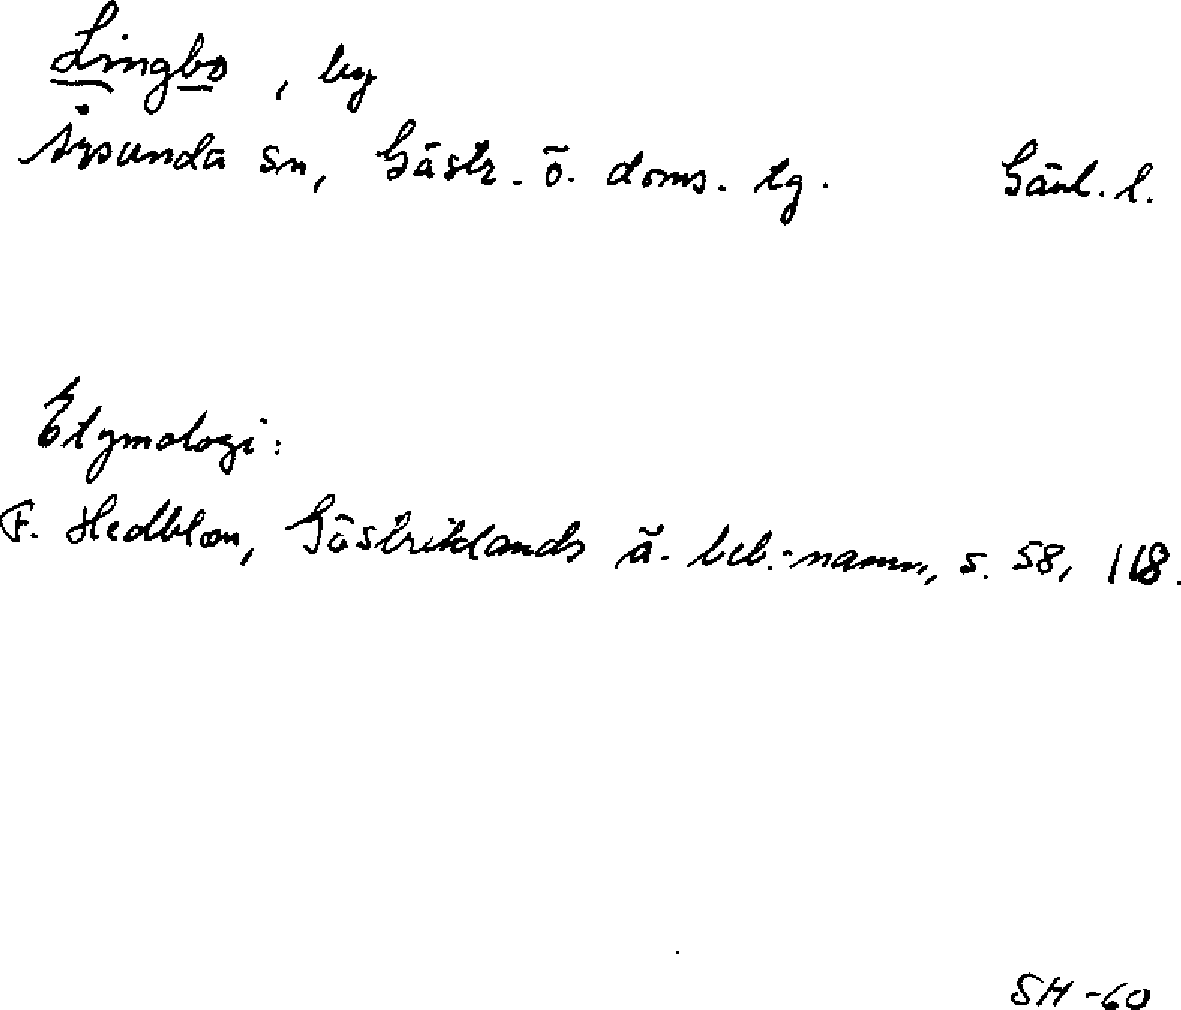 Lingbo, by
Årsunda sn, Gästr. ö. doms. lg. Gävl. l.
Etymologi:
F. Hedblom, Gästriklands ä. beb.-namn, s. 58, 118.
SH -60